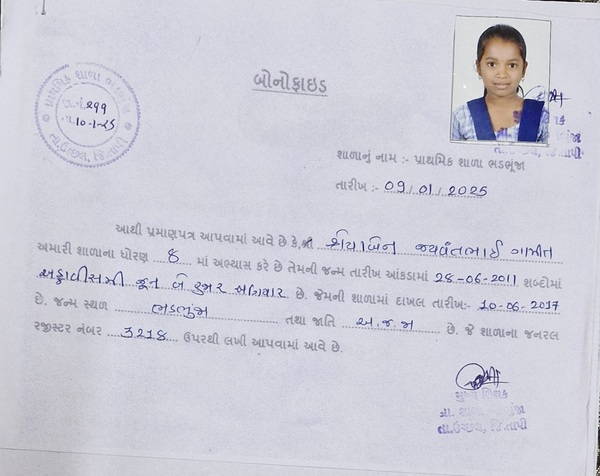 બોનોફાઇડ
પ્રાથમિક શાળા ભડભૂંજા
જા.નં. ૨૧૧
તા. ૧૦-૧-૨૫
તા.ઉચ્છલ, જિ.તાપી
શાળાનું નામ :- પ્રાથમિક શાળા ભડભૂંજા
તારીખ :- 09/01/2025
આથી પ્રમાણપત્ર આપવામાં આવે છે કે,શ્રી જયવંતભાઈ ગામીત
અમારી શાળાના ધોરણ 8 માં અભ્યાસ કરે છે તેમની જન્મ તારીખ આંકડામાં 28-06-2011 શબ્દોમાં
અઠ્ઠાવીસમી જૂન બે હજાર અગિયાર છે. જેમની શાળામાં દાખલ તારીખ:- 10-06-2017
છે. જન્મ સ્થળ ભડભુંજા તથા જાતિ અ.જ.જા છે. જે શાળાના જનરલ
રજીસ્ટર નંબર 3218 ઉપરથી લખી આપવામાં આવે છે.
મુખ્ય શિક્ષક
પ્રા. શાળા ભડભુંજા
તા.ઉચ્છલ, જિ.તાપી